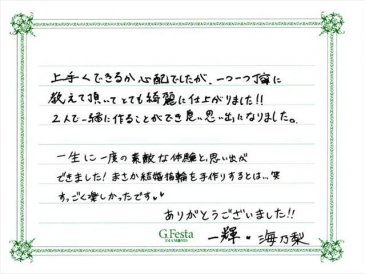 上手くできるか心配でしたが、一つ一つ丁寧に
教えて頂いてとても綺麗に仕上がりました!!
2人で一緒に作ることができ良い思い出になりました。
一生に一度の素敵な体験と思い出が
できました!まさか結婚指輪を手作りするとは…笑
すっごく楽しかったです♥
ありがとうございました!!
G.Festa
DIAMOND
一輝・海乃梨